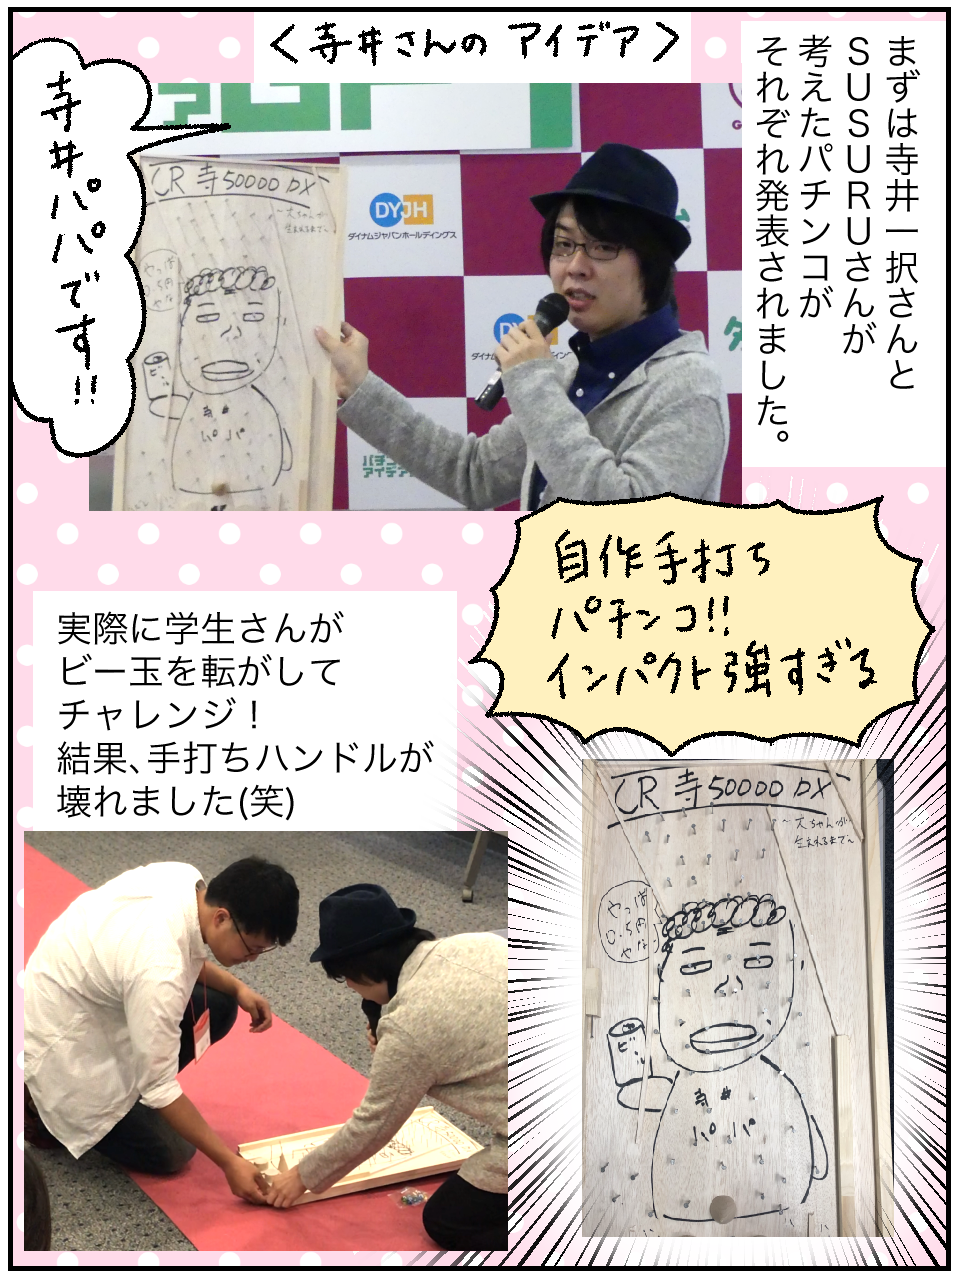 <寺井さんの アイデア>
まずは寺井一択さんと
SUSURUさんが
考えたパチンコが
それぞれ発表されました。
寺井パパです!!
CR 寺 50000 DX
〜大ちゃんが
生まれるまで〜
やっぱ
0.5円
やな
ビール
寺井
パパ
DYJH
ダイナムジャパンホールディングス
DY
自作手打ち
パチンコ!!
インパクト強すぎる
実際に学生さんが
ビー玉を転がして
チャレンジ！
結果、手打ちハンドルが
壊れました(笑)
CR 寺 50000 DX
〜大ちゃんが
生まれるまで〜
やっぱ
0.5円
やな
ビール
寺井
パパ